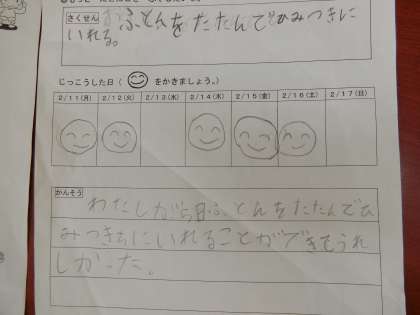 さくせん おふとんをたたんでひみつきちに
いれる。
じっこうした日( をかきましょう。)
2/11(月) 2/12(火) 2/13(水) 2/14(木) 2/15(金) 2/16(土) 2/17(日)
かんそう
わたしが毎日ふとんをたたんでひ
みつきちにいれることができてうれ
しかった。